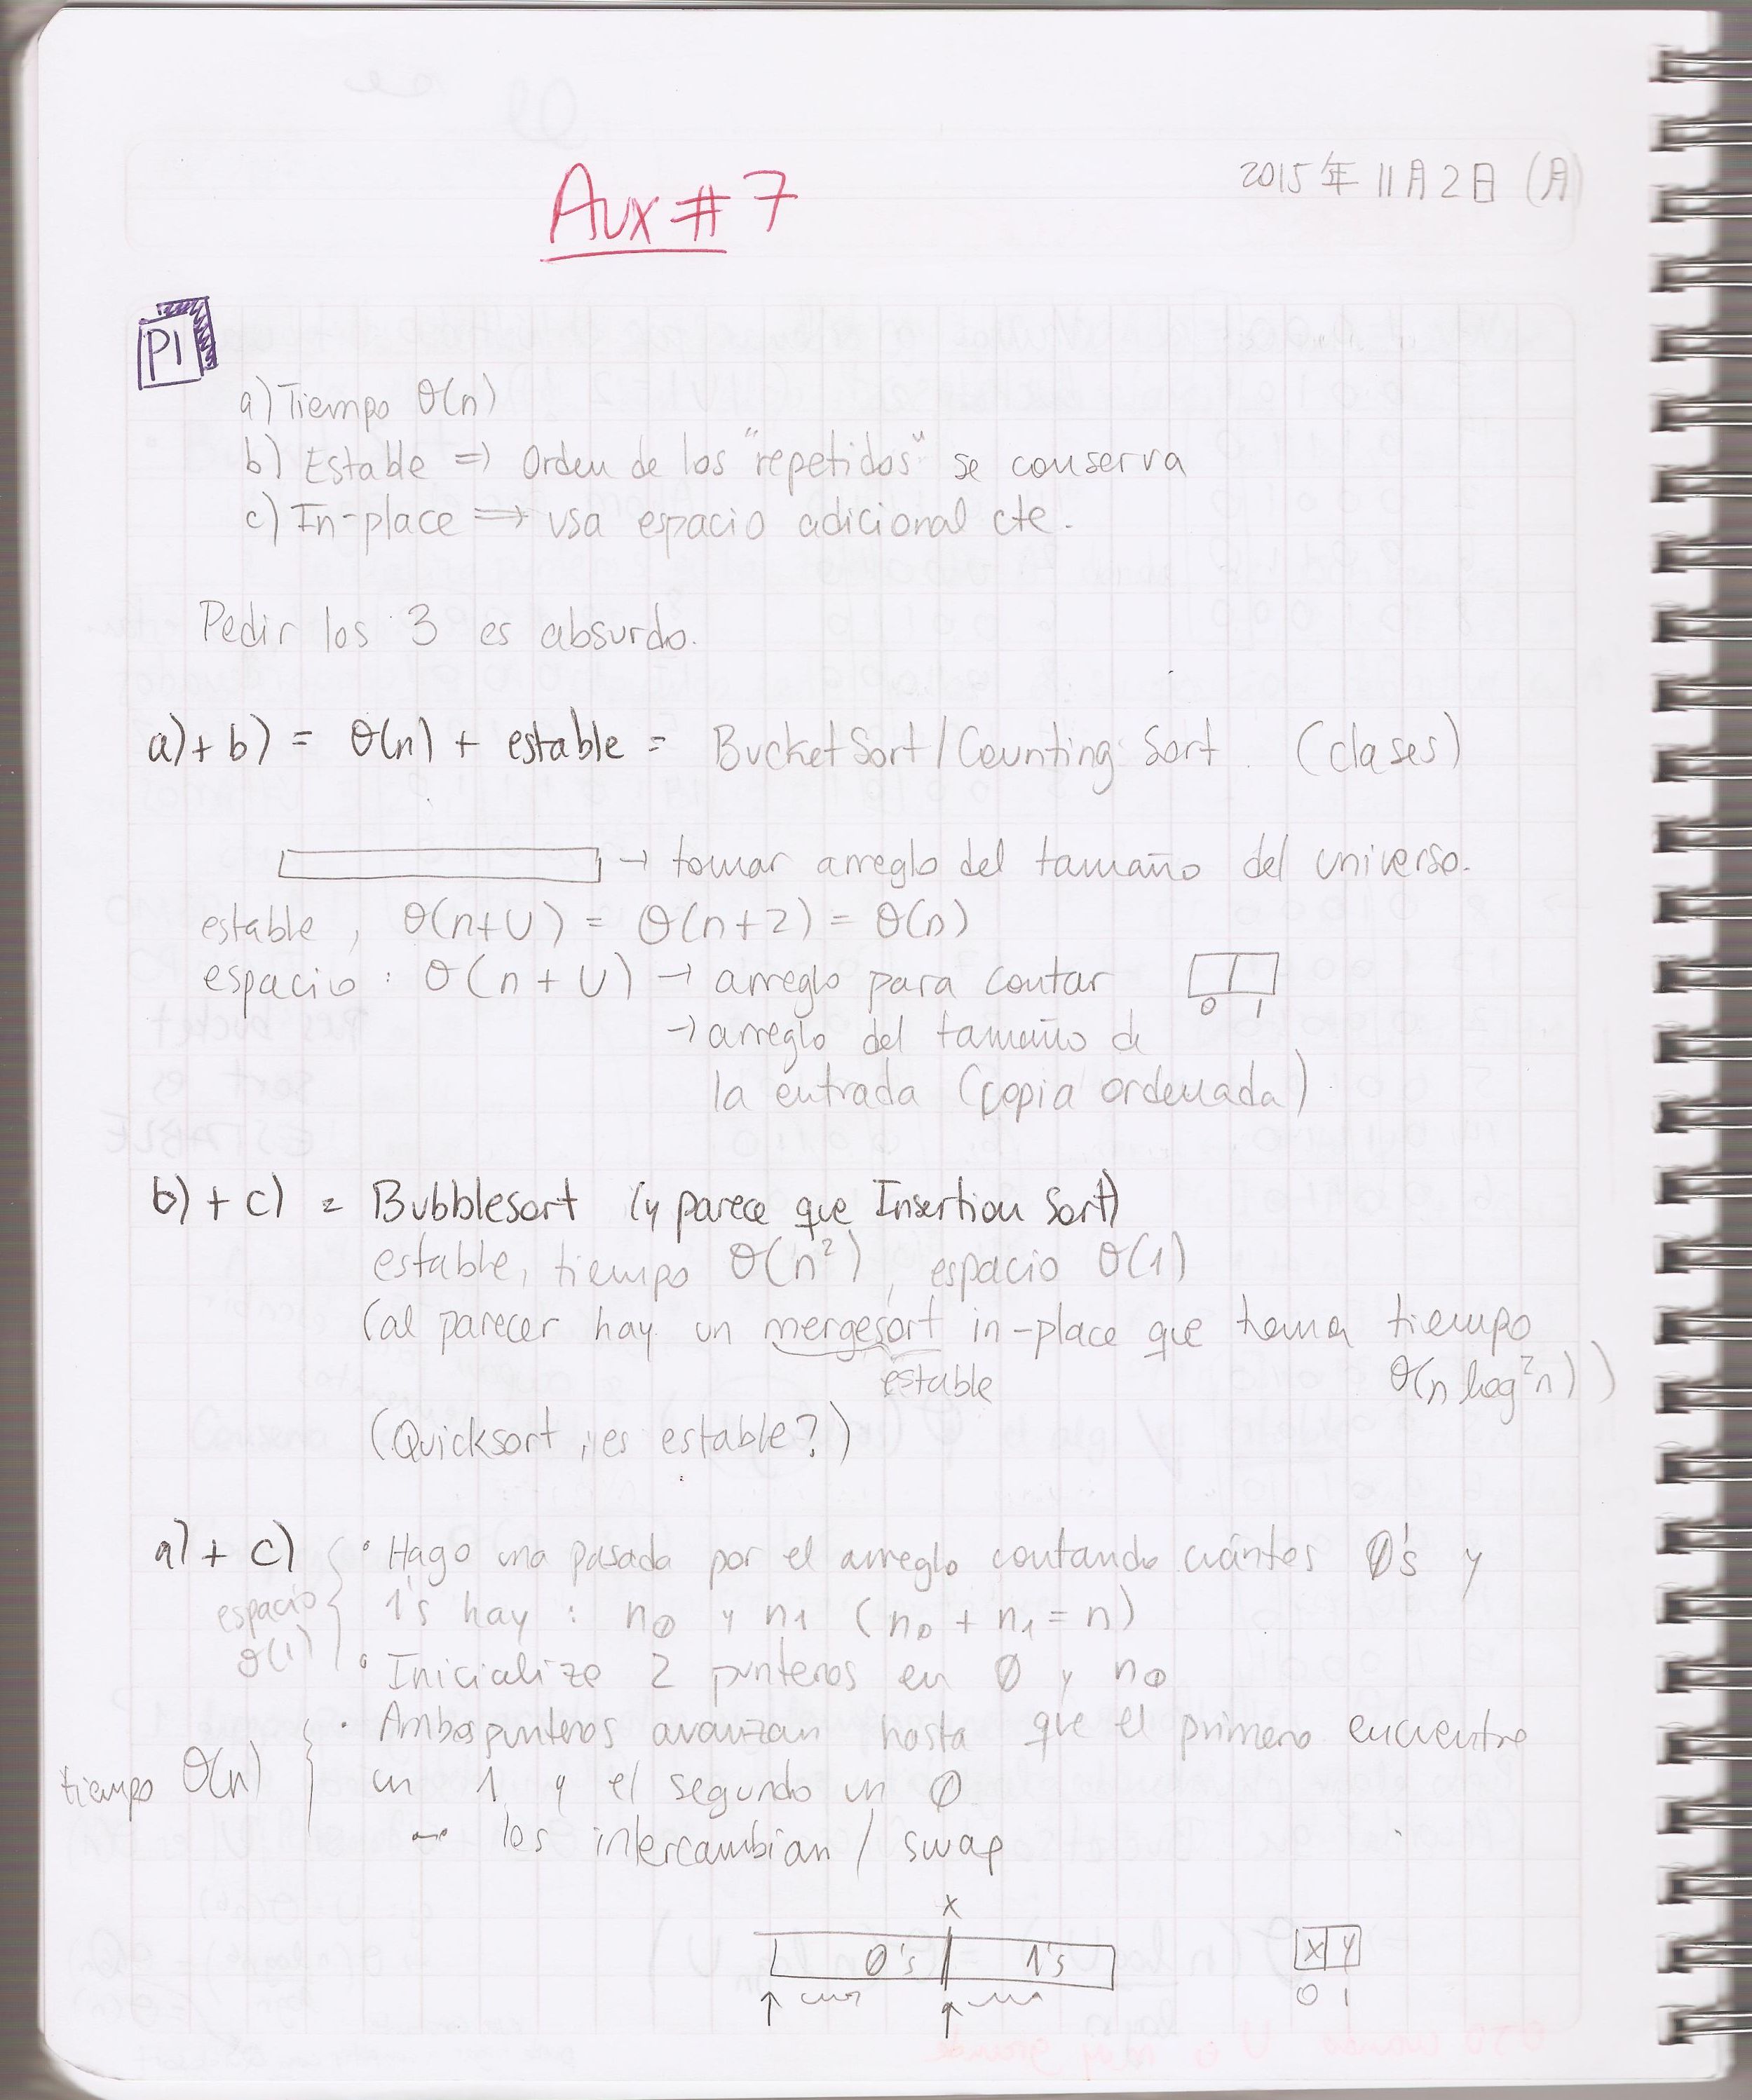 Aux # 7
2015年11月2日 (月)
P1
a) Tiempo Θ(n)
b) Estable => Orden de los "repetidos" se conserva
c) In-place => usa espacio adicional cte.
Pedir los 3 es absurdo.
a) + b) = Θ(n) + estable = BucketSort / Counting Sort. (clases)
→ tomar arreglo del tamaño del universo.
estable, Θ(n+U) = Θ(n+2) = Θ(n)
espacio: Θ(n+U) → arreglo para contar
0 1
→ arreglo del tamaño de
la entrada (copia ordenada)
b) + c) = Bubblesort (y parece que Insertion Sort)
estable, tiempo Θ(n²), espacio Θ(1)
(al parecer hay un mergesort in-place que toma tiempo
estable Θ(n log²n))
(Quicksort ¿es estable?)
a) + c) • Hago una pasada por el arreglo contando cuántos 0's y
espacio Θ(1) 1's hay: n0 y n1 (n0 + n1 = n)
• Inicializo 2 punteros en 0 y n0
• Ambos punteros avanzan hasta que el primero encuentre
tiempo Θ(n) un 1 y el segundo un 0
→ los intercambian / swap
x
0's 1's x y
0 1